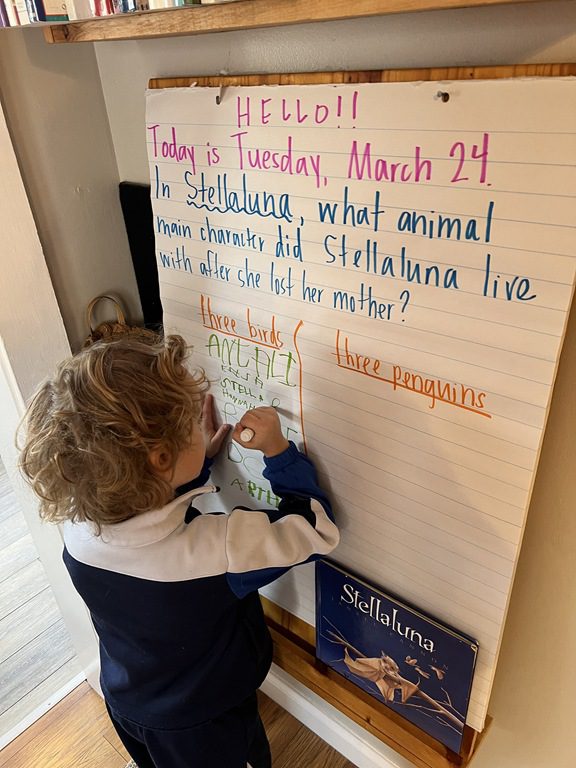 HELLO!!
Today is Tuesday, March 24.
In Stellaluna, what animal
main character did Stellaluna live
with after she lost her mother?
three birds
three penguins
STELLA
ARTH
Stellaluna